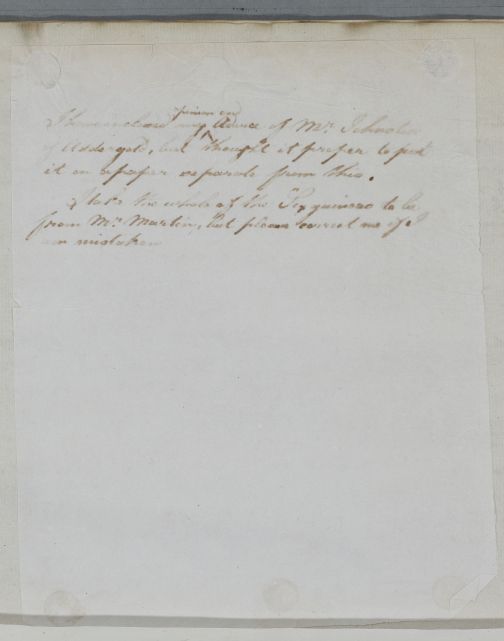 I have inclosed my opinion on
of Mr. Johnston
of gold, but thought it proper to put
it on a paper separate from this.
I take the whole of the to be
from Mr. Martin, but please correct me if I
am mistaken